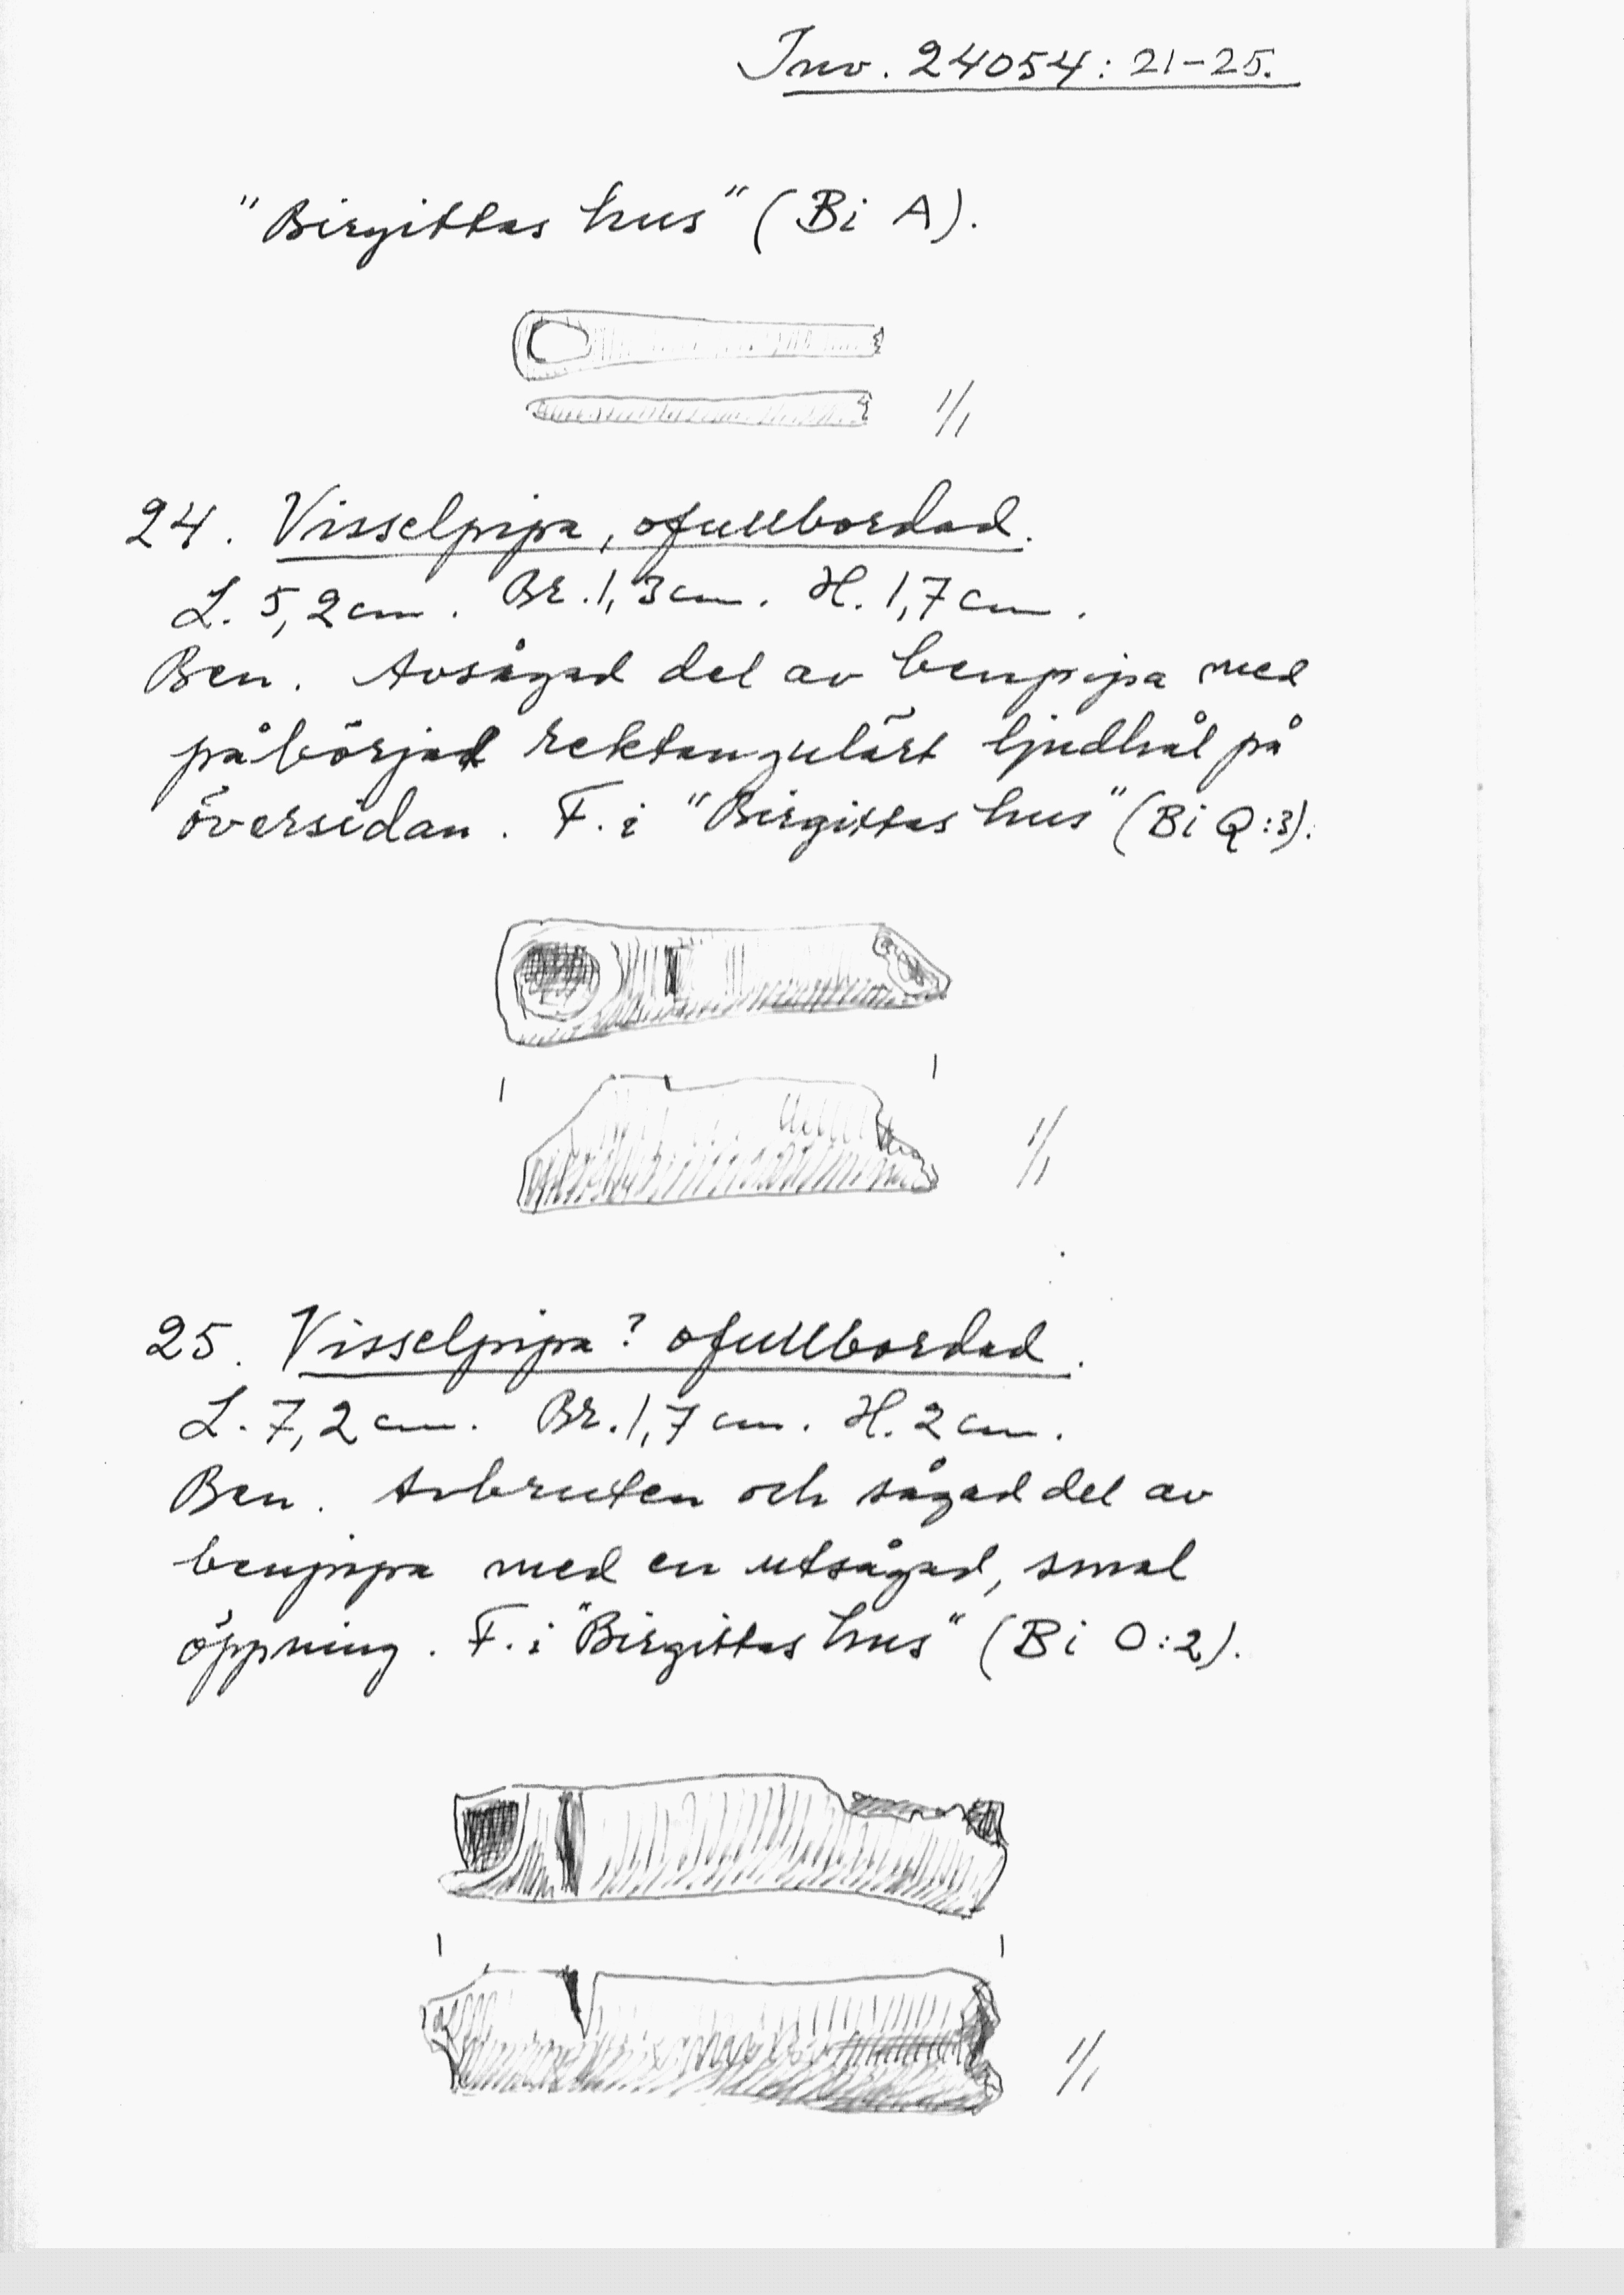 Inv. 24054: 21-25.
"Birgittas hus" (Bi A).
1/1
24. Visselpipa, ofullbordad.
L. 5,2 cm. Br. 1,3 cm. H. 1,7 cm.
Ben. Avsågad del av benpipa med
påbörjat rektangulärt ljudhål på
översidan. F. i "Birgittas hus" (Bi Q:3).
1/1
25. Visselpipa? ofullbordad.
L. 7,2 cm. Br. 1,7 cm. H. 2 cm.
Ben. Avbruten och sågad del av
benpipa med en utsågad, smal
öppning. F. i "Birgittas hus" (Bi O:2).
1/1